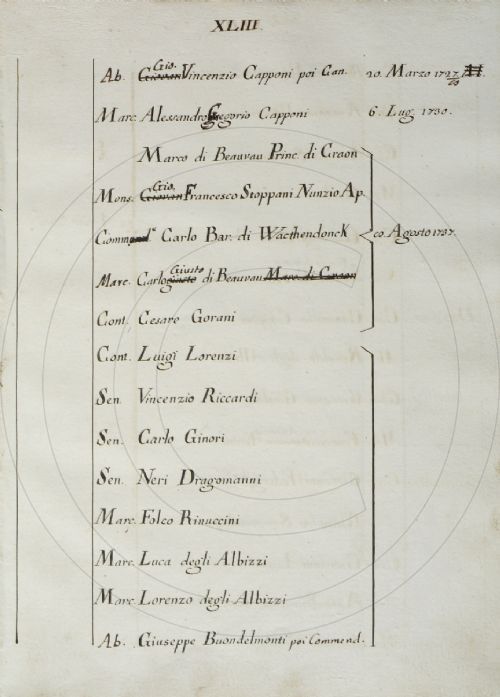 XLIII.
Ab. Gio. Vincenzio Capponi poi Can. 20. Marzo
Marc. Alessandro Gregorio Capponi 6. Lug. 1730.
Marco di Beauvau Princ. di Craon
Mons. Gio. Francesco Stoppani Nunzio Ap.
Commend.e Carlo Bar. di Wacthendonck 20. Agosto 1737.
Marc. Carlo Giusto di Beauvau Marc. di Craon
Cont. Cesare Gorani
Cont. Luigi Lorenzi
Sen. Vincenzio Riccardi
Sen. Carlo Ginori
Sen. Neri Dragomanni
Marc. Folco Rinuccini
Marc. Luca degli Albizzi
Marc. Lorenzo degli Albizzi
Ab. Giuseppe Buondelmonti poi Commend.